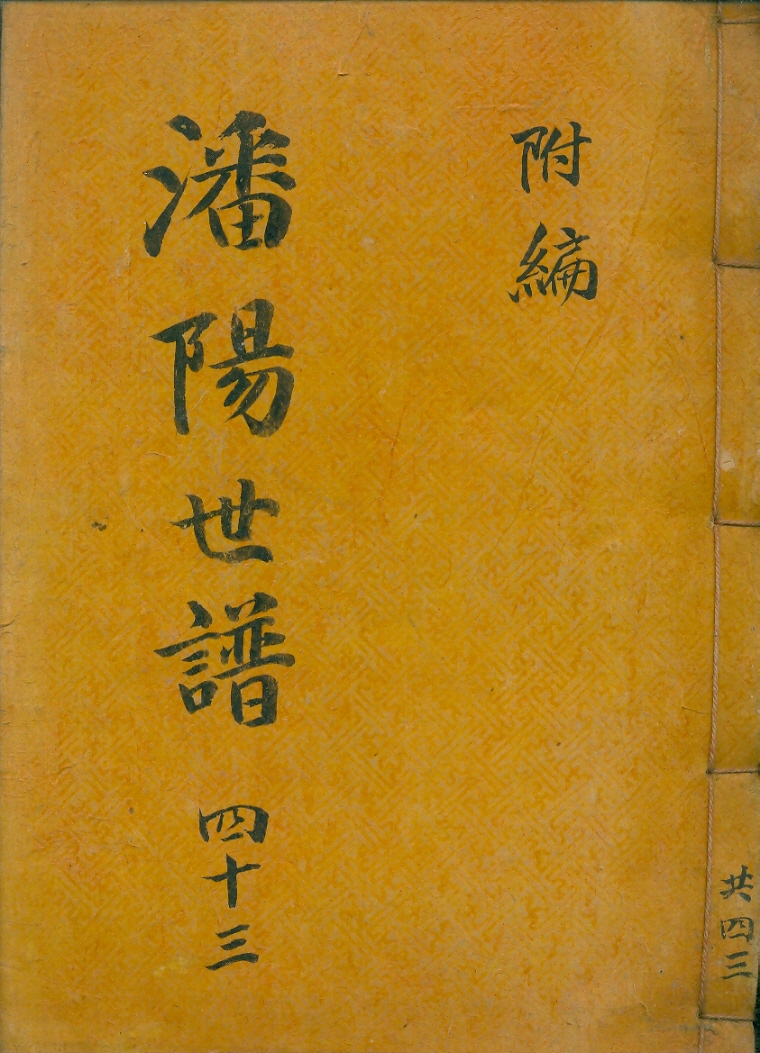 共四三
附編
潘陽世譜 四十三